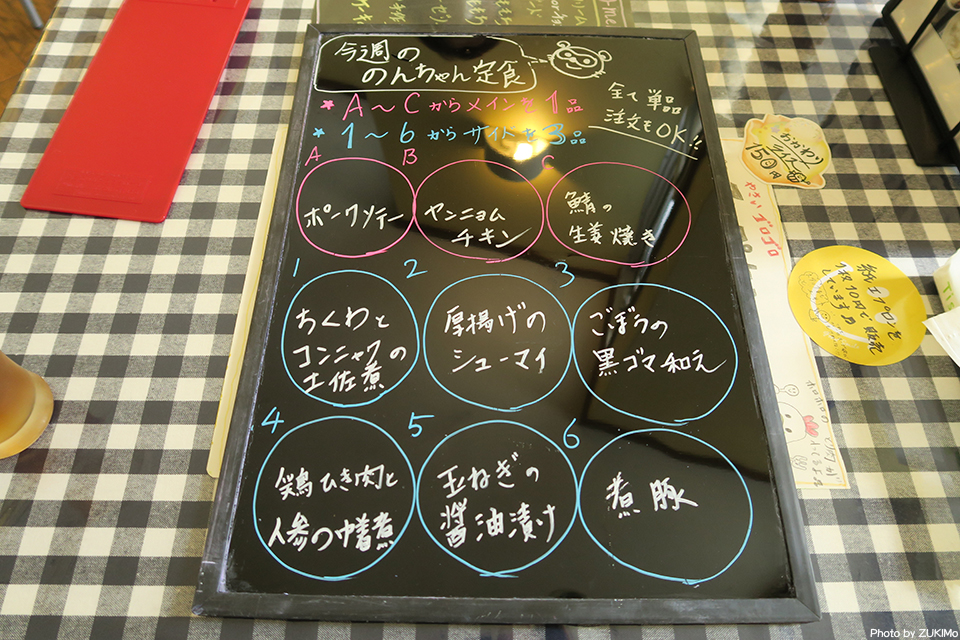 今週の
のんちゃん定食
★ A～Cからメインを1品
★ 1～6からサイドを3品
全て単品
注文もOK!!
A
ポークソテー
B
ヤンニョム
チキン
C
鯖の
生姜焼き
1
ちくわと
コンニャクの
土佐煮
2
厚揚げの
シューマイ
3
ごぼうの
黒ゴマ和え
4
鶏ひき肉と
人参の巾着煮
5
玉ねぎの
醤油漬け
6
煮豚
おかわり
ライス
150円
やさいゴロゴロ
紙エプロンを
1枚10円で販売
しています♬
Photo by ZUKIMo